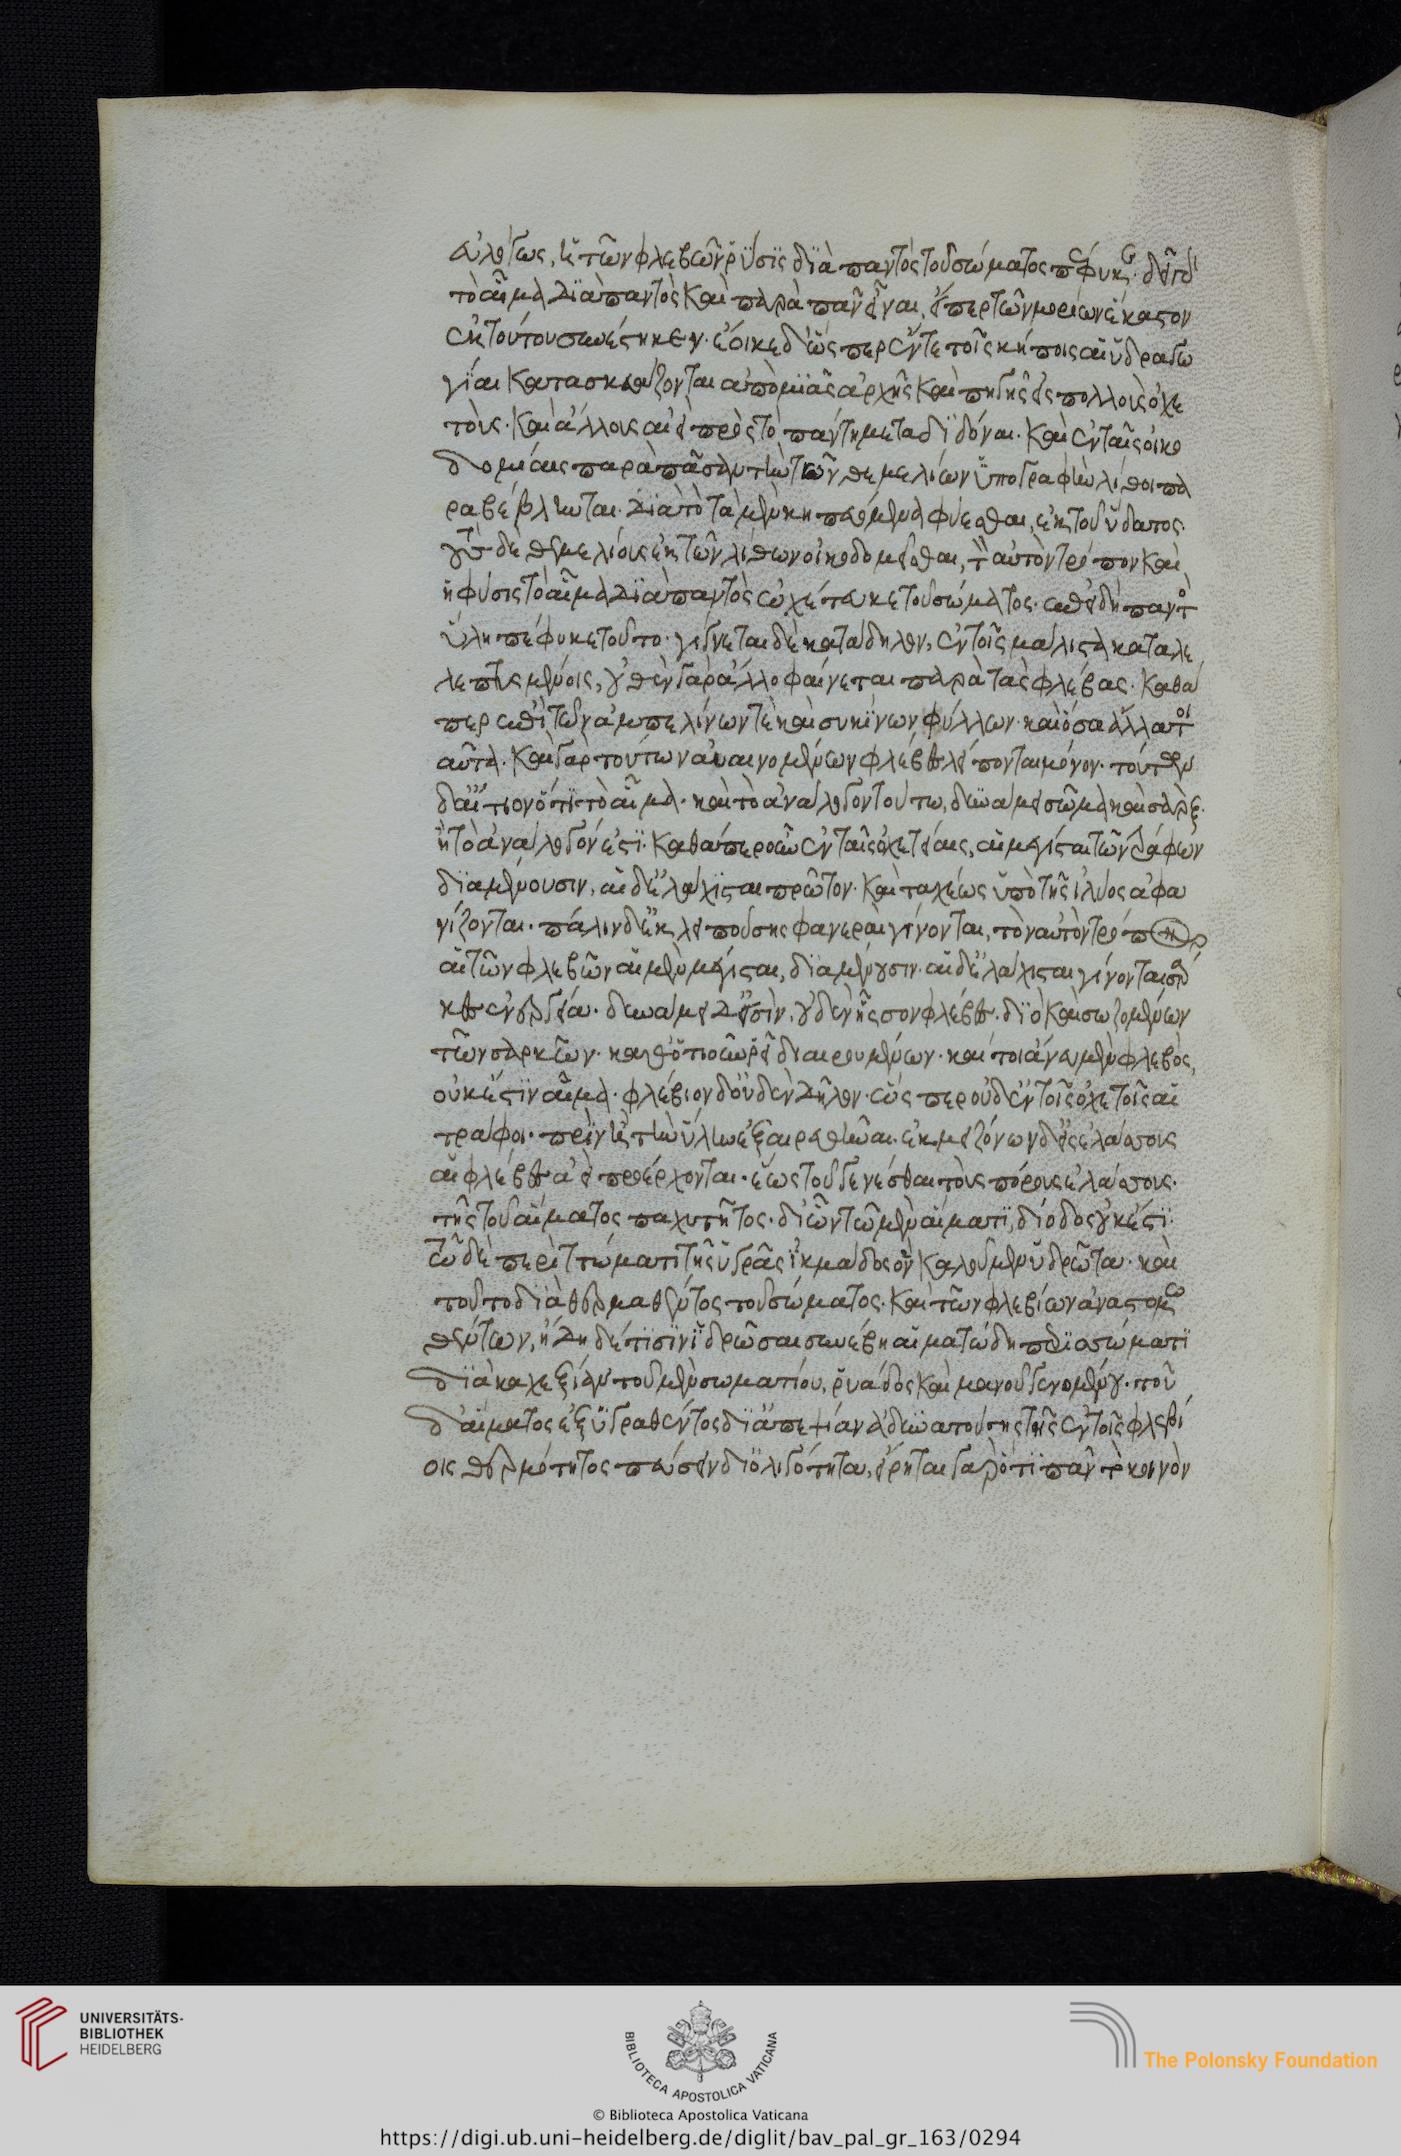 εὐλόγως, ἡ τῶν φλεβῶν ῥύσις διὰ παντὸς τοῦ σώματος πέφυκεν. δεῖ γὰρ
τὸ αἷμα διὰ παντὸς καὶ παρὰ πᾶν εἶναι, εἴπερ τῶν μορίων ἕκαστον
ἐκ τούτου συνέστηκεν. ἔοικε δ' ὥσπερ ἔν τε τοῖς κήποις αἱ ὑδραγω
γίαι κατασκευάζονται ἀπὸ μιᾶς ἀρχῆς καὶ πηγῆς εἰς πολλοὺς ὀχε
τοὺς. καὶ ἄλλους αἰεὶ πρὸς τὸ πάντη μεταδιδόναι. καὶ ἐν ταῖς οἰκο
δομίαις παρὰ πᾶσαν τὴν τῶν θεμελίων ὑπογραφὴν λίθοι πα
ραβέβληνται. διὰ τὸ τὰ μὲν κηπευόμενα φύεσθαι, ἐκ τοῦ ὕδατος.
τοὺς δὲ θεμελίους ἐκ τῶν λίθων οἰκοδομεῖσθαι, τὸν αὐτὸν τρόπον καὶ
ἡ φύσις τὸ αἷμα διὰ παντὸς ὠχέτευκε τοῦ σώματος. ἐπειδὴ παντὸς
ὕλη πέφυκε τοῦτο. γίγνεται δὲ κατάδηλον, ἐν τοῖς μάλιστα καταλε
λεπτυσμένοις, οὐθὲν γὰρ ἄλλο φαίνεται παρὰ τὰς φλέβας. καθά
περ ἐπὶ τῶν ἀμπελίνων τε καὶ συκίνων φύλλων. καὶ ὅσα ἄλλα τοι
αῦτα. καὶ γὰρ τούτων αὐαινομένων φλέβες λείπονται μόνον. τούτων
δ' αἴτιον ὅτι τὸ αἷμα. καὶ τὸ ἀνάλογον τούτω, δυνάμει σῶμα καὶ σὰρξ.
ἢ τὸ ἀνάλογόν ἐστι. καθάπερ οὖν ἐν ταῖς ὀχετείαις, αἱ μέγισται τῶν τάφρων
διαμένουσιν, αἱ δ' ἐλάχισται πρῶτον. καὶ ταχέως ὑπὸ τῆς ἰλύος ἀφα
νίζονται. πάλιν δ' ἐκλειπούσης φανεραὶ γίνονται, τὸν αὐτὸν τρόπον καὶ
αἱ τῶν φλεβῶν αἱ μὲν μέγισται, διαμένουσιν. αἱ δ' ἐλάχισται γίνονται σάρ
κες ἐνεργεία. δυνάμει δ' εἰσὶν, οὐδὲν ἧσσον φλέβες. διὸ καὶ σωζομένων
τῶν σαρκῶν. καθ' ὁτιοῦν ῥεῖ διαιρουμένων. καίτοι ἄνευ μὲν φλεβὸς,
οὐκ ἔστιν αἷμα. φλέβιον δ' οὐδὲν δῆλον. ὥσπερ οὐδ' ἐν τοῖς ὀχετοῖς αἱ
τράφοι. πρὶν ἢ τὴν ὕλιν ἐξαιρεθῆναι. ἐκ μειζόνων δ' εἰς ἐλάσσους
αἱ φλέβες αἰεὶ προέρχονται. ἕως τοῦ γενέσθαι τοὺς πόρους ἐλάσσους.
τῆς τοῦ αἵματος παχυτῆτος. δι' ὧν τῶ μὲν αἵματι, δίοδος οὐκ ἔστι.
τῶ δὲ περιττώματι τῆς ὑγρᾶς ἰκμάδος ὃν καλοῦμεν ὑδρῶτα. καὶ
τοῦτο διαθερμαθέντος τοῦ σώματος. καὶ τῶν φλεβίων ἀναστομω
θέντων, ἤδη δέ τισιν ἱδρῶσαι συνέβη αἱματώδη περισσώματι
διὰ καχεξίαν τοῦ μὲν σωματίου, ῥυάδος καὶ μανοῦ γενομένου. τοῦ
δ' αἵματος ἐξυγραθέντος δι' ἀπεψίαν ἀδυνατούσης τῆς ἐν τοῖς φλεβί
οις θερμότητος πέσσειν δι' ὀλιγότητα, εἴρηται γὰρ ὅτι πᾶν τὸ κοινὸν
UNIVERSITÄTS-
BIBLIOTHEK
HEIDELBERG
BIBLIOTECA APOSTOLICA VATICANA
The Polonsky Foundation
© Biblioteca Apostolica Vaticana
https://digi.ub.uni-heidelberg.de/diglit/bav_pal_gr_163/0294